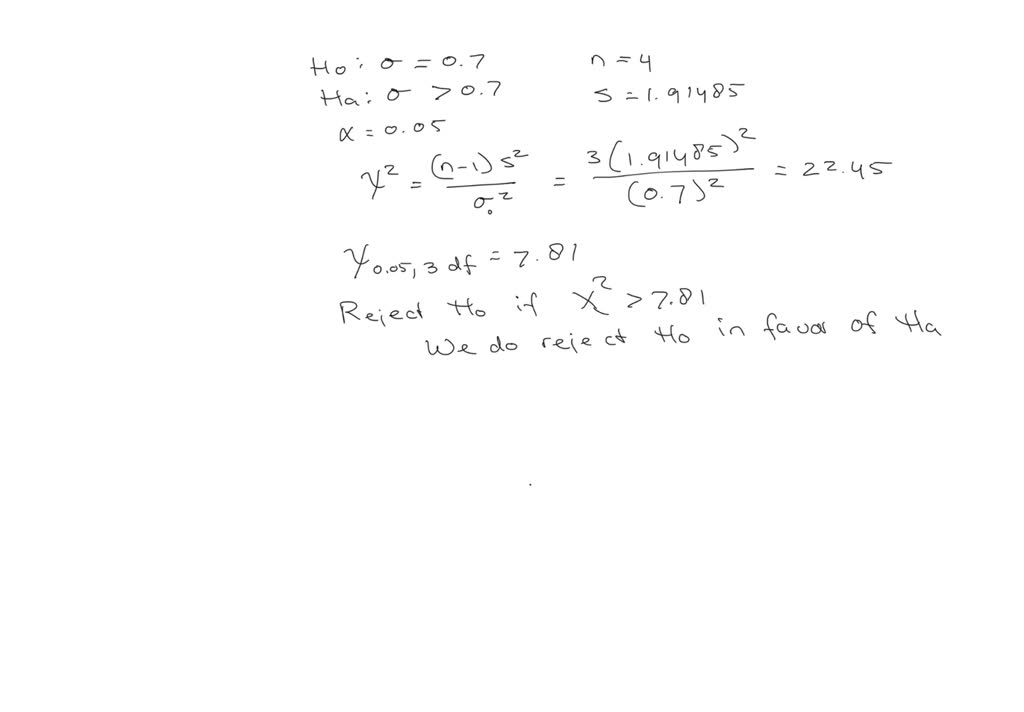 Ho: σ = 0.7 n = 4
Ha: σ > 0.7 s = 1.91485
α = 0.05
χ² = (n-1) s² / σ₀² = 3(1.91485)² / (0.7)² = 22.45
χ 0.05, 3 df = 7.81
Reject Ho if χ² > 7.81
We do reject Ho in favor of Ha